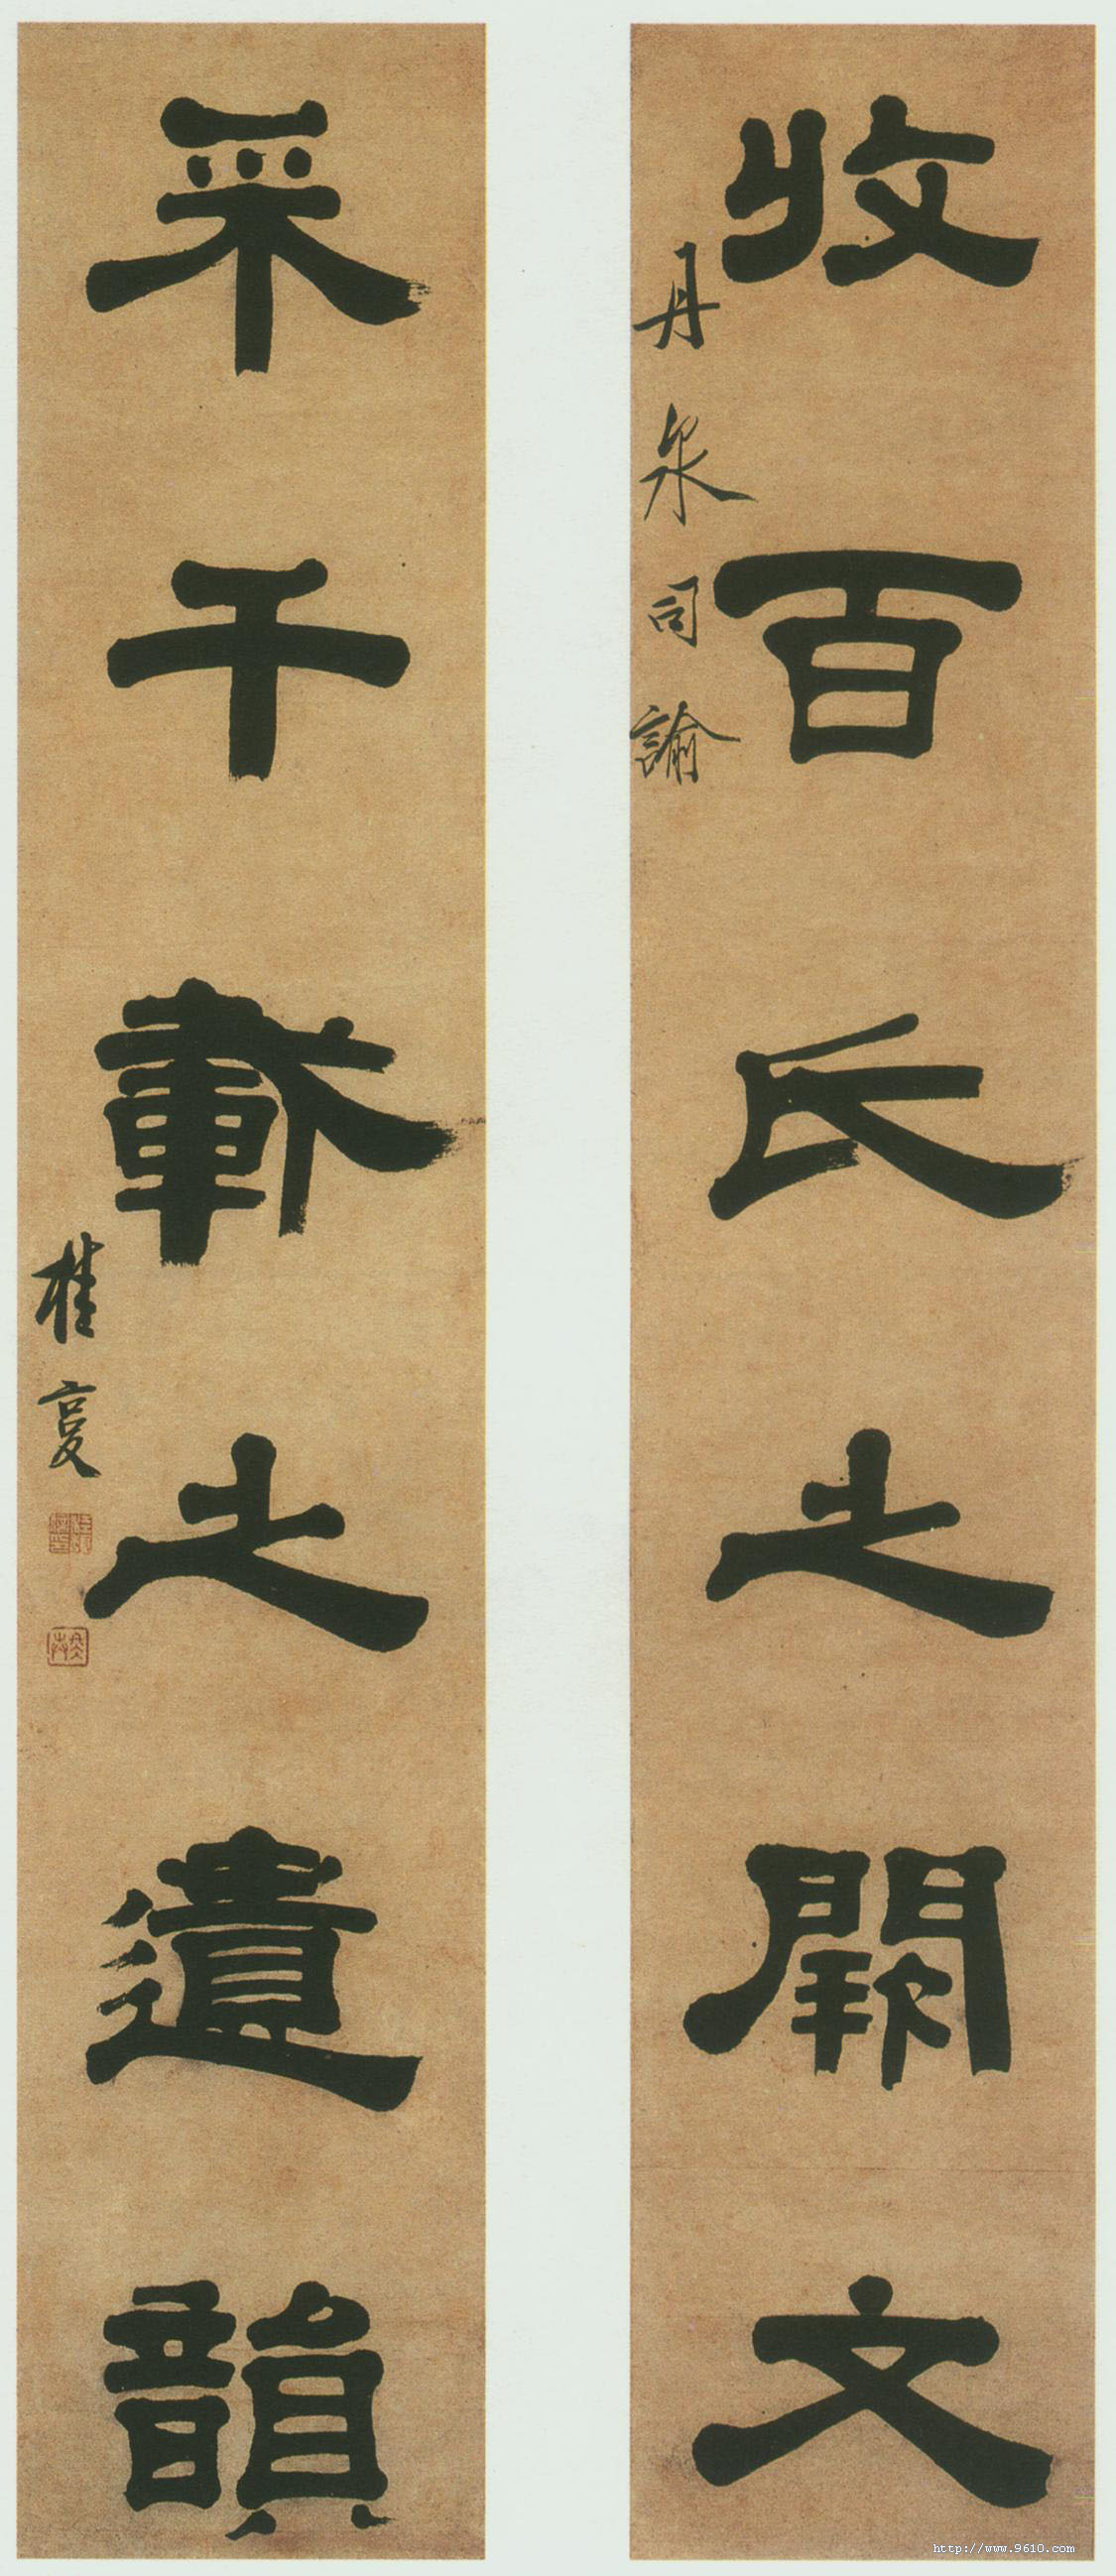 收百氏之闕文
丹泉司諭
采千載之遺韻
桂馥
http://www.9610.com